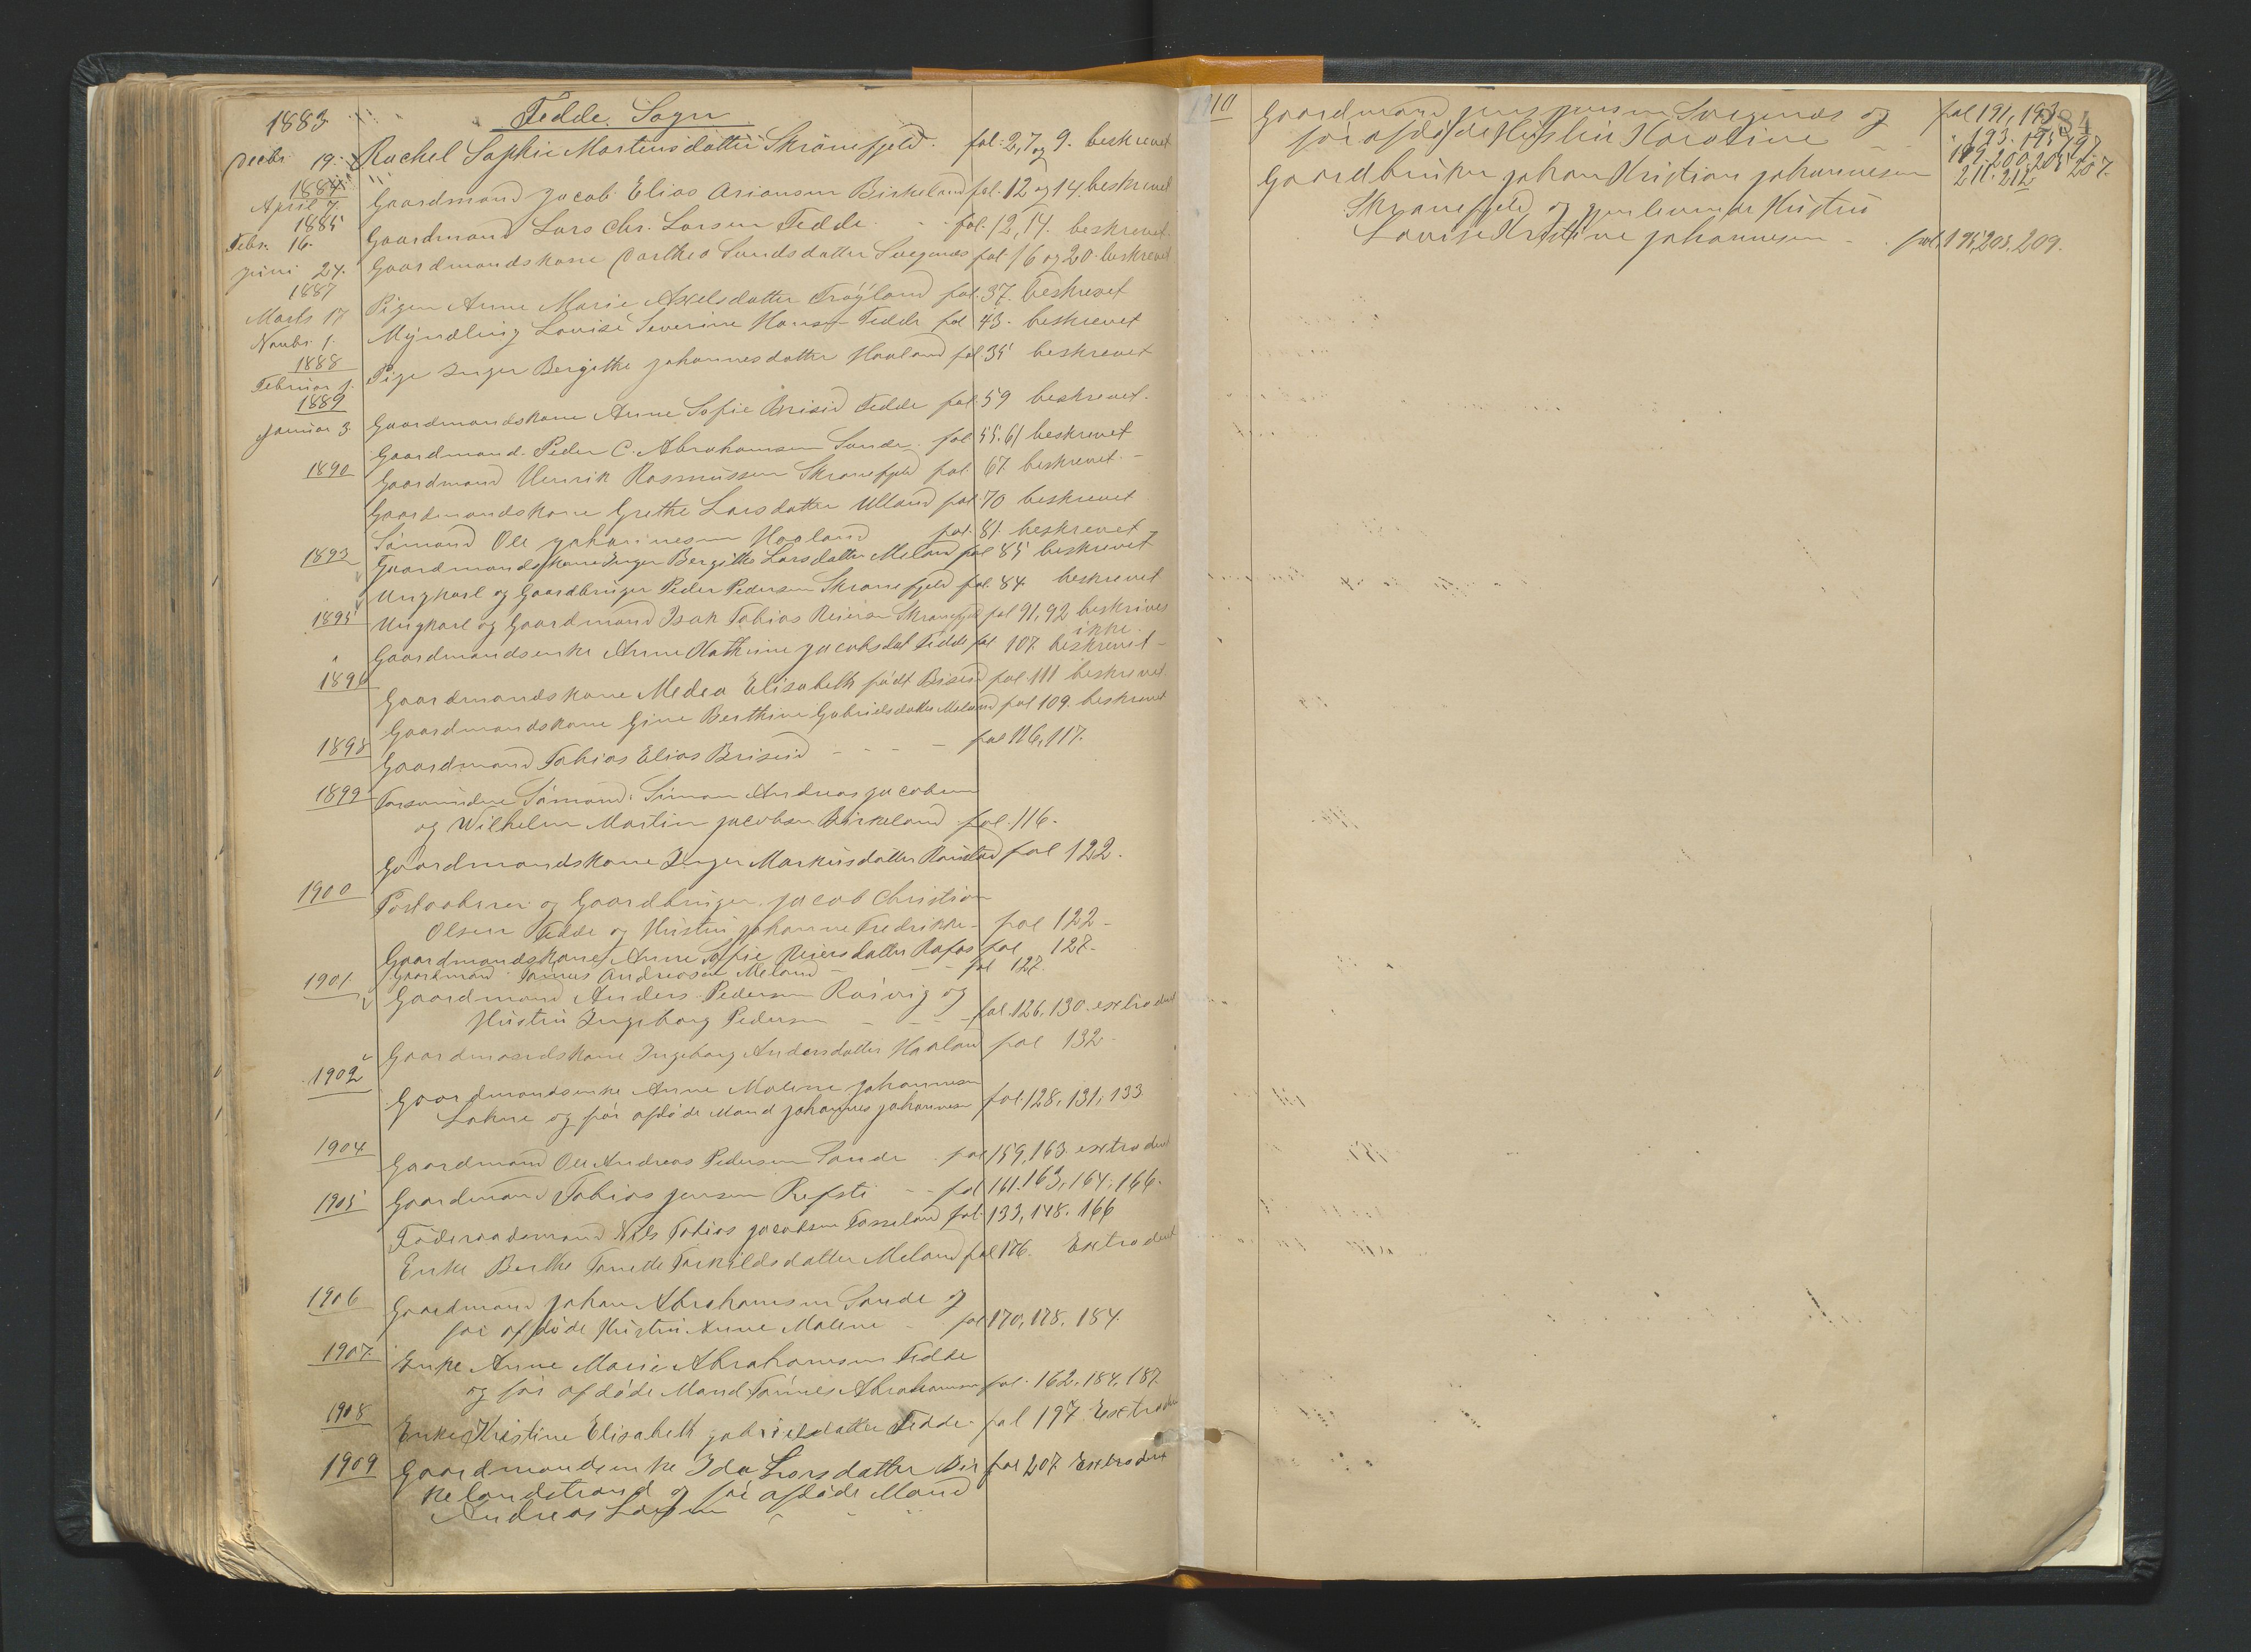 1883 Fedde. Sogn
Decbr 19. Rachel Sophie Martensdatter Skranefjeld. fol. 2, 7 og 9. beskrevet
1884
April 7. Gaardmand Jacob Elias Ariansen Birkeland fol. 12 og 14. beskrevet
1885
Febr. 16. Gaardmand Lars Chr. Larsen Fedde. fol. 12, 14. beskrevet.
Juni 24. Gaardmandskone Dorthea Sundsdatter Svegenæs fol. 16 og 20. beskrevet
1887
Marts 17 Pigen Anne Marie Axelsdatter Tröÿland fol. 37. beskrevet
Novbr 1. Mÿndling Lovise Severine Hansen Fedde fol 43. beskrevet
1888
Februar 1. Pige Inger Bergithe Johannesdatter Haaland fol. 35 beskrevet
1889
Januar 3 Gaardmandskone Anne Sofie Briseid Fedde fol. 59 beskrevet.
Gaardmand Peder C. Abrahamsen Sande. fol 55. 61 beskrevet
1890 Gaardmand Henrik Rasmussen Skranefjeld fol. 67. beskrevet. -
Gaardmandskone Grethe Larsdatter Ulland fol. 70 beskrevet
Sömand Ole Johannesen Haaland fol. 81. beskrevet
1893 Gaardmandskone Inger Bergitte Larsdatter Meland fol 85 beskrevet
Ungkarl og Gaardbruger Peder Pedersen Skranefjeld fol. 84. beskrevet
1895 Ungkarl og Gaardmand Isak Tobias Reiersen Skranefjeld fol 91, 92 beskrives
ikke.
" Gaardmandsenke Anne Kathrine Jacobsdat Fedde fol 107. beskrevet -
1896 Gaardmandskone Medea Elisabeth födt Briseid fol. 111 beskrevet
Gaardmandskone Gine Berthine Gabrielsdatter Meland fol 109. beskrevet
1898 Gaardmand Tobias Elias Briseid - - - - fol 116, 117.
1899 Forsvundne Sömænd: Simon Andreas Jacobsen
og Wilhelm Martin Jacobsen Birkeland fol. 116.
Gaardmandskone Inger Markusdatter fol 122.
1900 Postaabner og Gaardbruger Jacob Christian
Olsen Fedde og Hustru Johanne Fredrikke - fol 122 -
Gaardmandskone Anne Sofie Reiersdatter Rafos fol 127. -
Gaardmand Tönnes Andreasen Meland - - - fol 127.
1901 Gaardmand Anders Pedersen Rörvig og
Hustru Ingeborg Pedersen - - - fol. 126, 130. extradert
Gaardmandskone Ingeborg Andersdatter Haaland fol 132 -
1902 Gaardmandsenke Anne Malene Johannesen
Lohne og för afdöde Mand Johannes Johannesen fol. 128, 131, 133
1904 Gaardmand Ole Andreas Pedersen Sande. fol 159, 163. extradert
1905 Gaardmand Tobias Jensen Refsti - - fol 161. 163, 164, 166.
Föderaadsmand Nils Tobias Jacobsen Fosseland fol. 133, 148. 166
Enke Berthe Tonette Torkildsdatter Meland fol 176. Extradert
1906 Gaardmand Johan Abrahamsen Sande og
för afdöde Hustru Anne Malene - fol 170, 178. 184.
1907. Enke Anne Marie Abrahamsen Fedde
og för afdöde Mand Tönnes Abrahamsen fol. 162. 184. 187.
1908 Enke Kristine Elisabeth Gabrielsdatter Fedde. fol 197. Extradert
1909 Gaardmandsenke Ida Larsdatter Bir fol 207. Extradert
kelandstrand og för afdöde Mand
Andreas Larsen
1910 Gaardmand Jens Jensen Svegenæs og fol 191, 193
för afdöde Hustru Karoline - - 193. 195. 197.
Gaardbruker Johan Kristian Johannesen 199. 200. 205. 207.
Skranefjeld og gjenlevende Hustru 211. 212
Lovise Kristine Johannesen - . fol. 195, 203, 209.